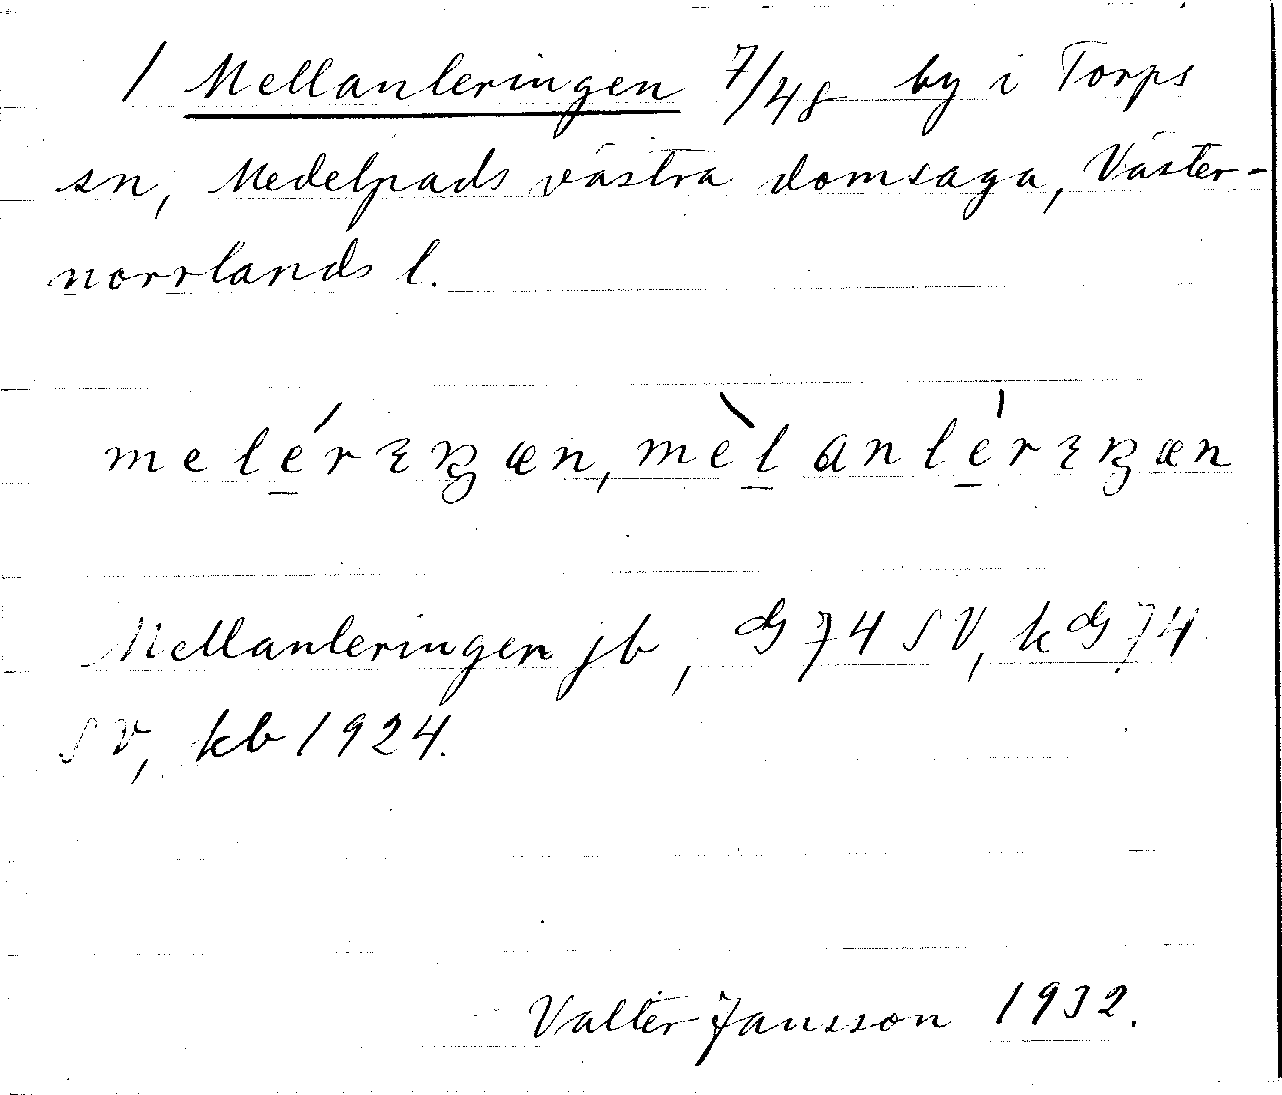 1 Mellanleringen 7/48 by i Torps
sn, Medelpads västra domsaga, Väster-
norrlands l.
Mellanleringen jb, G 74 SV, k G 74
SV, kb 1924.
Valter Jansson 1932.